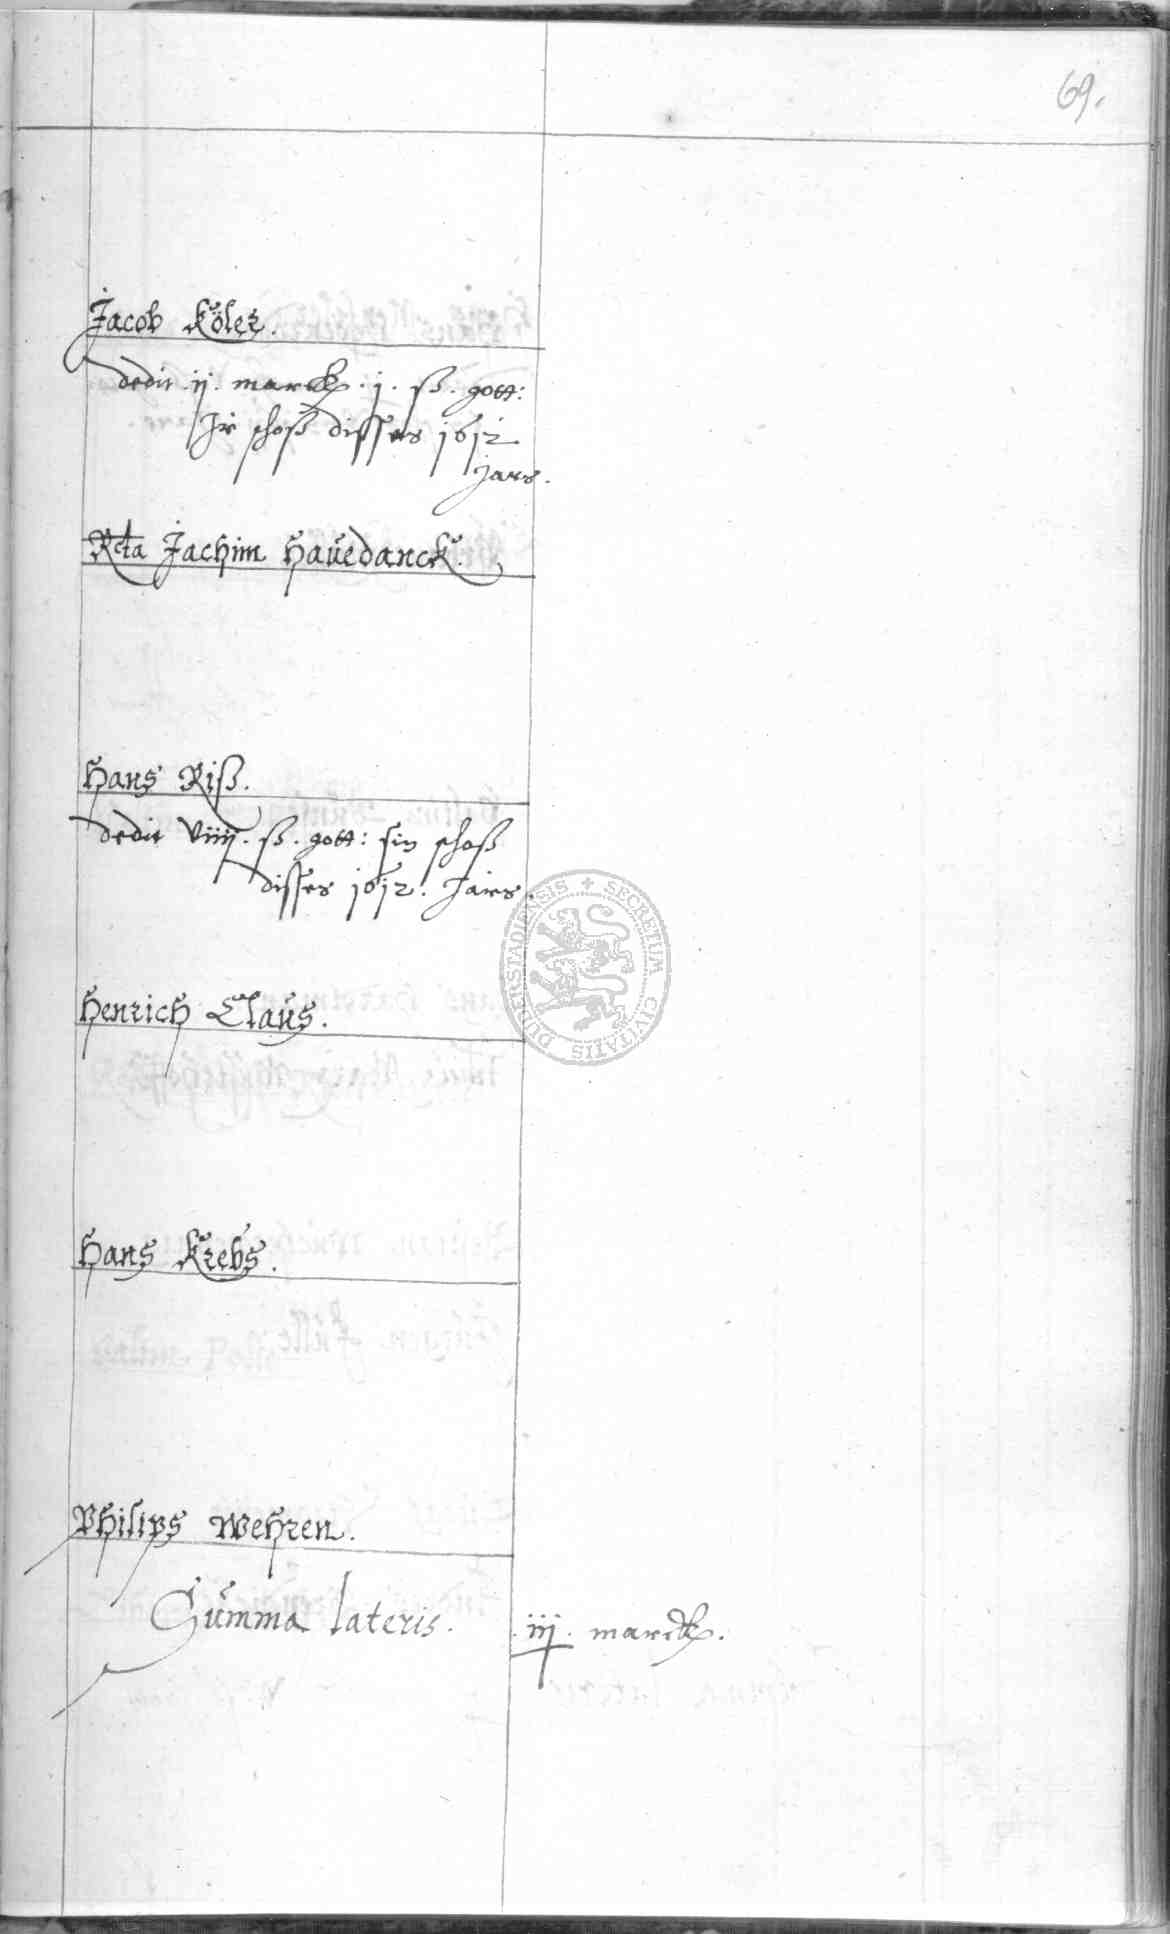 69.
Jacob Köler.
dedit .ij. marck. j. ß. gott:
Jr schoß disses 1612
jars.
Rcta Jachim Hauedanck.
Hans Riß.
dedit viiij. ß. gott: sin schoß
disses 1612. Jars.
SECRETUM CIVITATIS DUDERSTADIENSIS
Henrich Claus.
Hans Krebs.
Philips Wehren.
Summa lateris. iij. marck.